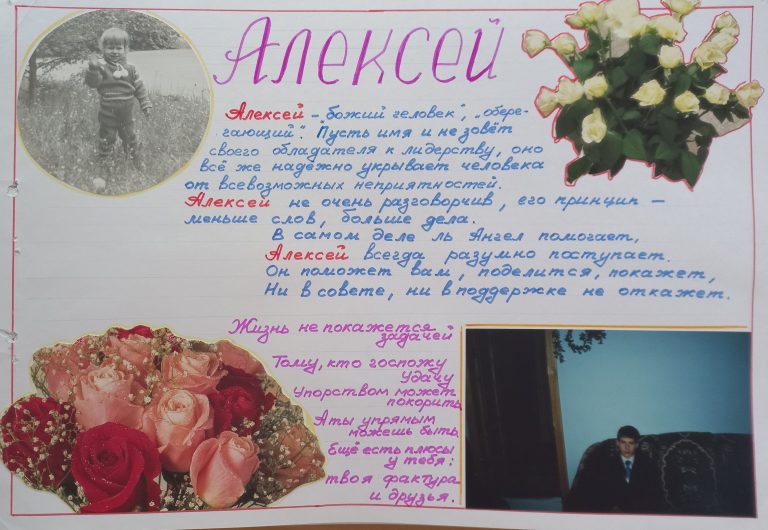 Алексей
Алексей – „божий человек", „обере-
гающий". Пусть имя и не зовёт
своего обладателя к лидерству, оно
всё же надёжно укрывает человека
от всевозможных неприятностей.
Алексей не очень разговорчив, его принцип –
меньше слов, больше дела.
В самом деле ль Ангел помогает,
Алексей всегда разумно поступает.
Он поможет вам, поделится, покажет,
Ни в совете, ни в поддержке не откажет.
Жизнь не покажется
задачей
Тому, кто госпожу
Удачу
Упорством может
покорить
А ты упрямым
можешь быть.
Ещё есть плюсы
у тебя:
твоя фактура
и друзья.